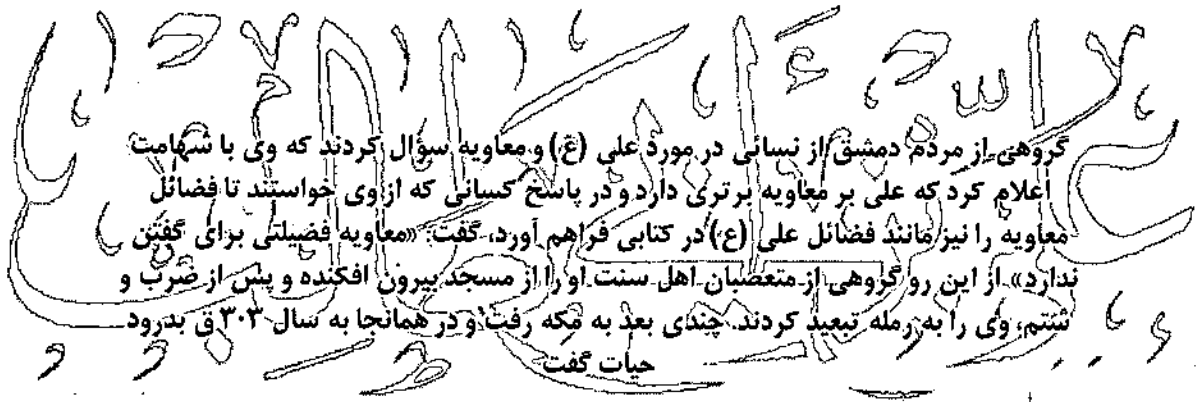 گروهی از مردم دمشق از نسائی در مورد علی (ع) و معاویه سؤال کردند که وی با شهامت
اعلام کرد که علی بر معاویه برتری دارد و در پاسخ کسانی که از وی خواستند تا فضائل
معاویه را نیز مانند فضائل علی (ع) در کتابی فراهم آورد، گفت: «معاویه فضیلتی برای گفتن
ندارد». از این رو گروهی از متعصبان اهل سنت او را از مسجد بیرون افکنده و پس از ضرب و
شتم، وی را به رمله تبعید کردند. چندی بعد به مکه رفت و در همانجا به سال ۳۰۳ ق بدرود
حیات گفت